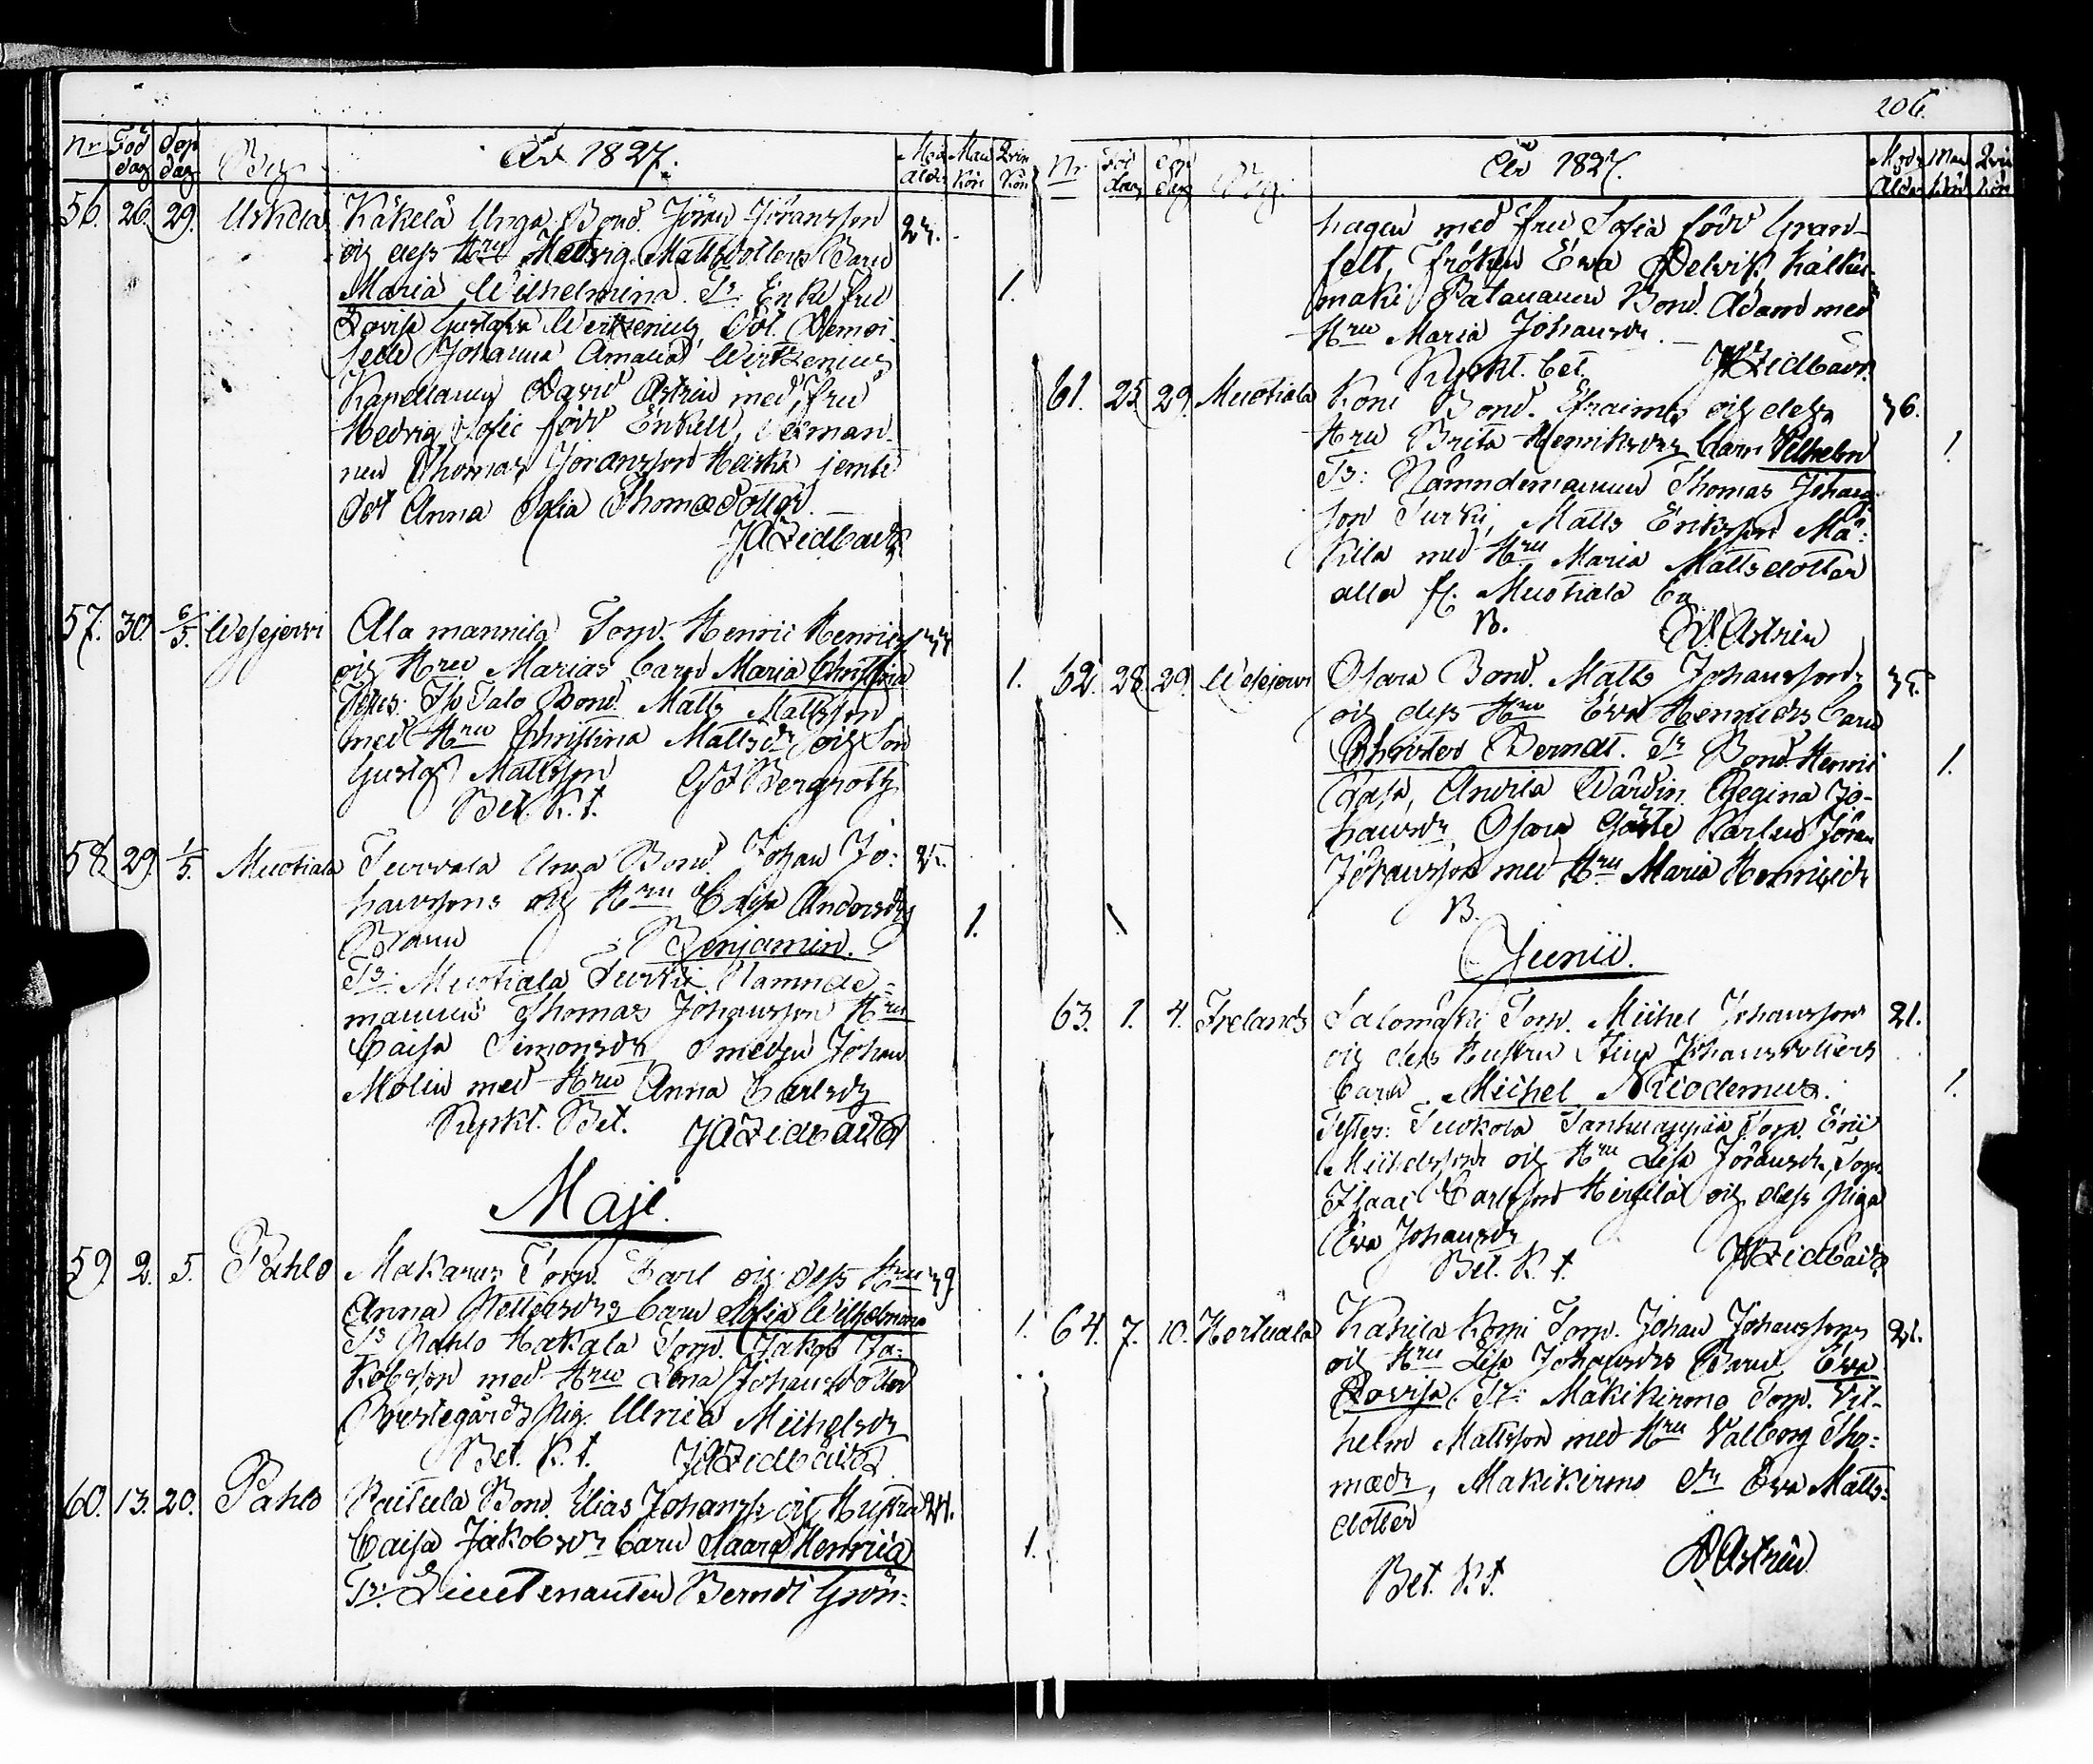 206.
Nr Föd dag Döp dag By År 1827. Mod. Ålder Man Kön Qvin Kön
56. 26. 29. Uskela Käkelä Unga Bond. Jöran Jöransson
och dess Hru Hedvig Mattsdotters Barn
Maria Wilhelmina. Ts Enke fru 1.
Lovisa Gustafva Wertzenius Dot. Demoi-
selle Johanna Amalia Wirtzenius
Kapellanen David Astrén med fru
Hedvig Sofie född Enkell,
Thomas Jöransson Heiska jemte
dot Anna Sofia Thomædotter.
JAZidbäck
57. 30. 6/5. Wesejervi Ala mannila Torp. Henric Henrics
och Hru Marias barn Maria Christina 1.
Testes: Talo Bond. Matts Mattsson
med Hru Christina Mattsdr och Son
Gustaf Mattsson Bergroth
Bet. K. t.
58. 29. 1/5. Muotiala Turvala Unga Bond. Johan Jo-
hanssons och Hru Caisa Andersdrs
Barn Benjamin. 1.
Ts: Muotiala Turkki Nämnde-
mannen Thomas Johansson Hru
Caisa Simonsdr Smeden Johan
Molin med Hru Anna Carlsdr
Kyrkt. Bet. JAZidbäck
Maji.
59. 2. 5. Pahlo Makarus Torp. Carl och dess Hru 39
Anna Pettersdrs barn Sofia Wilhelmina 1.
Ts Pahlo Hakala Torp. Jakob Ja-
kobsson med Hru Lena Johansdotter
Prestegårds Pig. Ulrica Michelsdr
Bet. K. t. JAZidbäck
60. 13. 20. Pahlo Bond. Elias Johanss. och Hustru 24.
Caisa Jakobsdr barn Saara Henrica 1.
Ts. Lieutenanten Berndt Grön-
Nr Föd dag Döp dag By År 1827. Modr Ålder Man kön Qvin kön
hagen med fru Sofia född Gran-
felt, fröken Eva Delvik, Kälkä-
mäki Patananen Bond. Adam med
Hru Maria Johansdr.
Kyrkt. bet. JAZidbäck
61. 25. 29. Muotiala Koni Bond. Efraims och dess 36.
Hru Brita Henriksdrs barn Vilhelm 1.
Ts: Nämndemannen Thomas Johans-
son Turkki, Matts Eriksson Mä-
kilä med Hru Maria Mattsdotter
alla fr. Muotiala by
B. D. Astrén
62. 28. 29. Wesejervi Ojara Bond. Matts Johanssons 35.
och dess Hru Eva Henricsdrs barn
Christer Berndt. Ts Bond. Henric 1.
Anvila Regina Jo-
hansdr, Ojara Karlen Jöran
Johansson med Hru Maria Henricsdr
B.
Junii.
63. 1. 4. Frelands Salomäki Torp. Michel Johansson 21.
och dess hustru Stina Johansdotters
barn Michel Nicodemus. 1.
Testes: Tuokola Torp. Eric
Michelsson och Hru Lisa Jöransdr, Torp.
Isaac Carlsson och dess Piga
Eva Johansdr
Bet. K. t. JAZidbäck
64. 7. 10. Hortuala Kakila Koni Torp. Johan Johanssons 21.
och Hru Lisa Johansdrs Barn Eva
Lovisa. Ts: Mäkikirmo Torp. Vil-
helm Mattsson med Hru Valborg Tho-
mædr, Mäkikirmo dr Eva Matts-
dotter
Bet. K. t. D Astrén